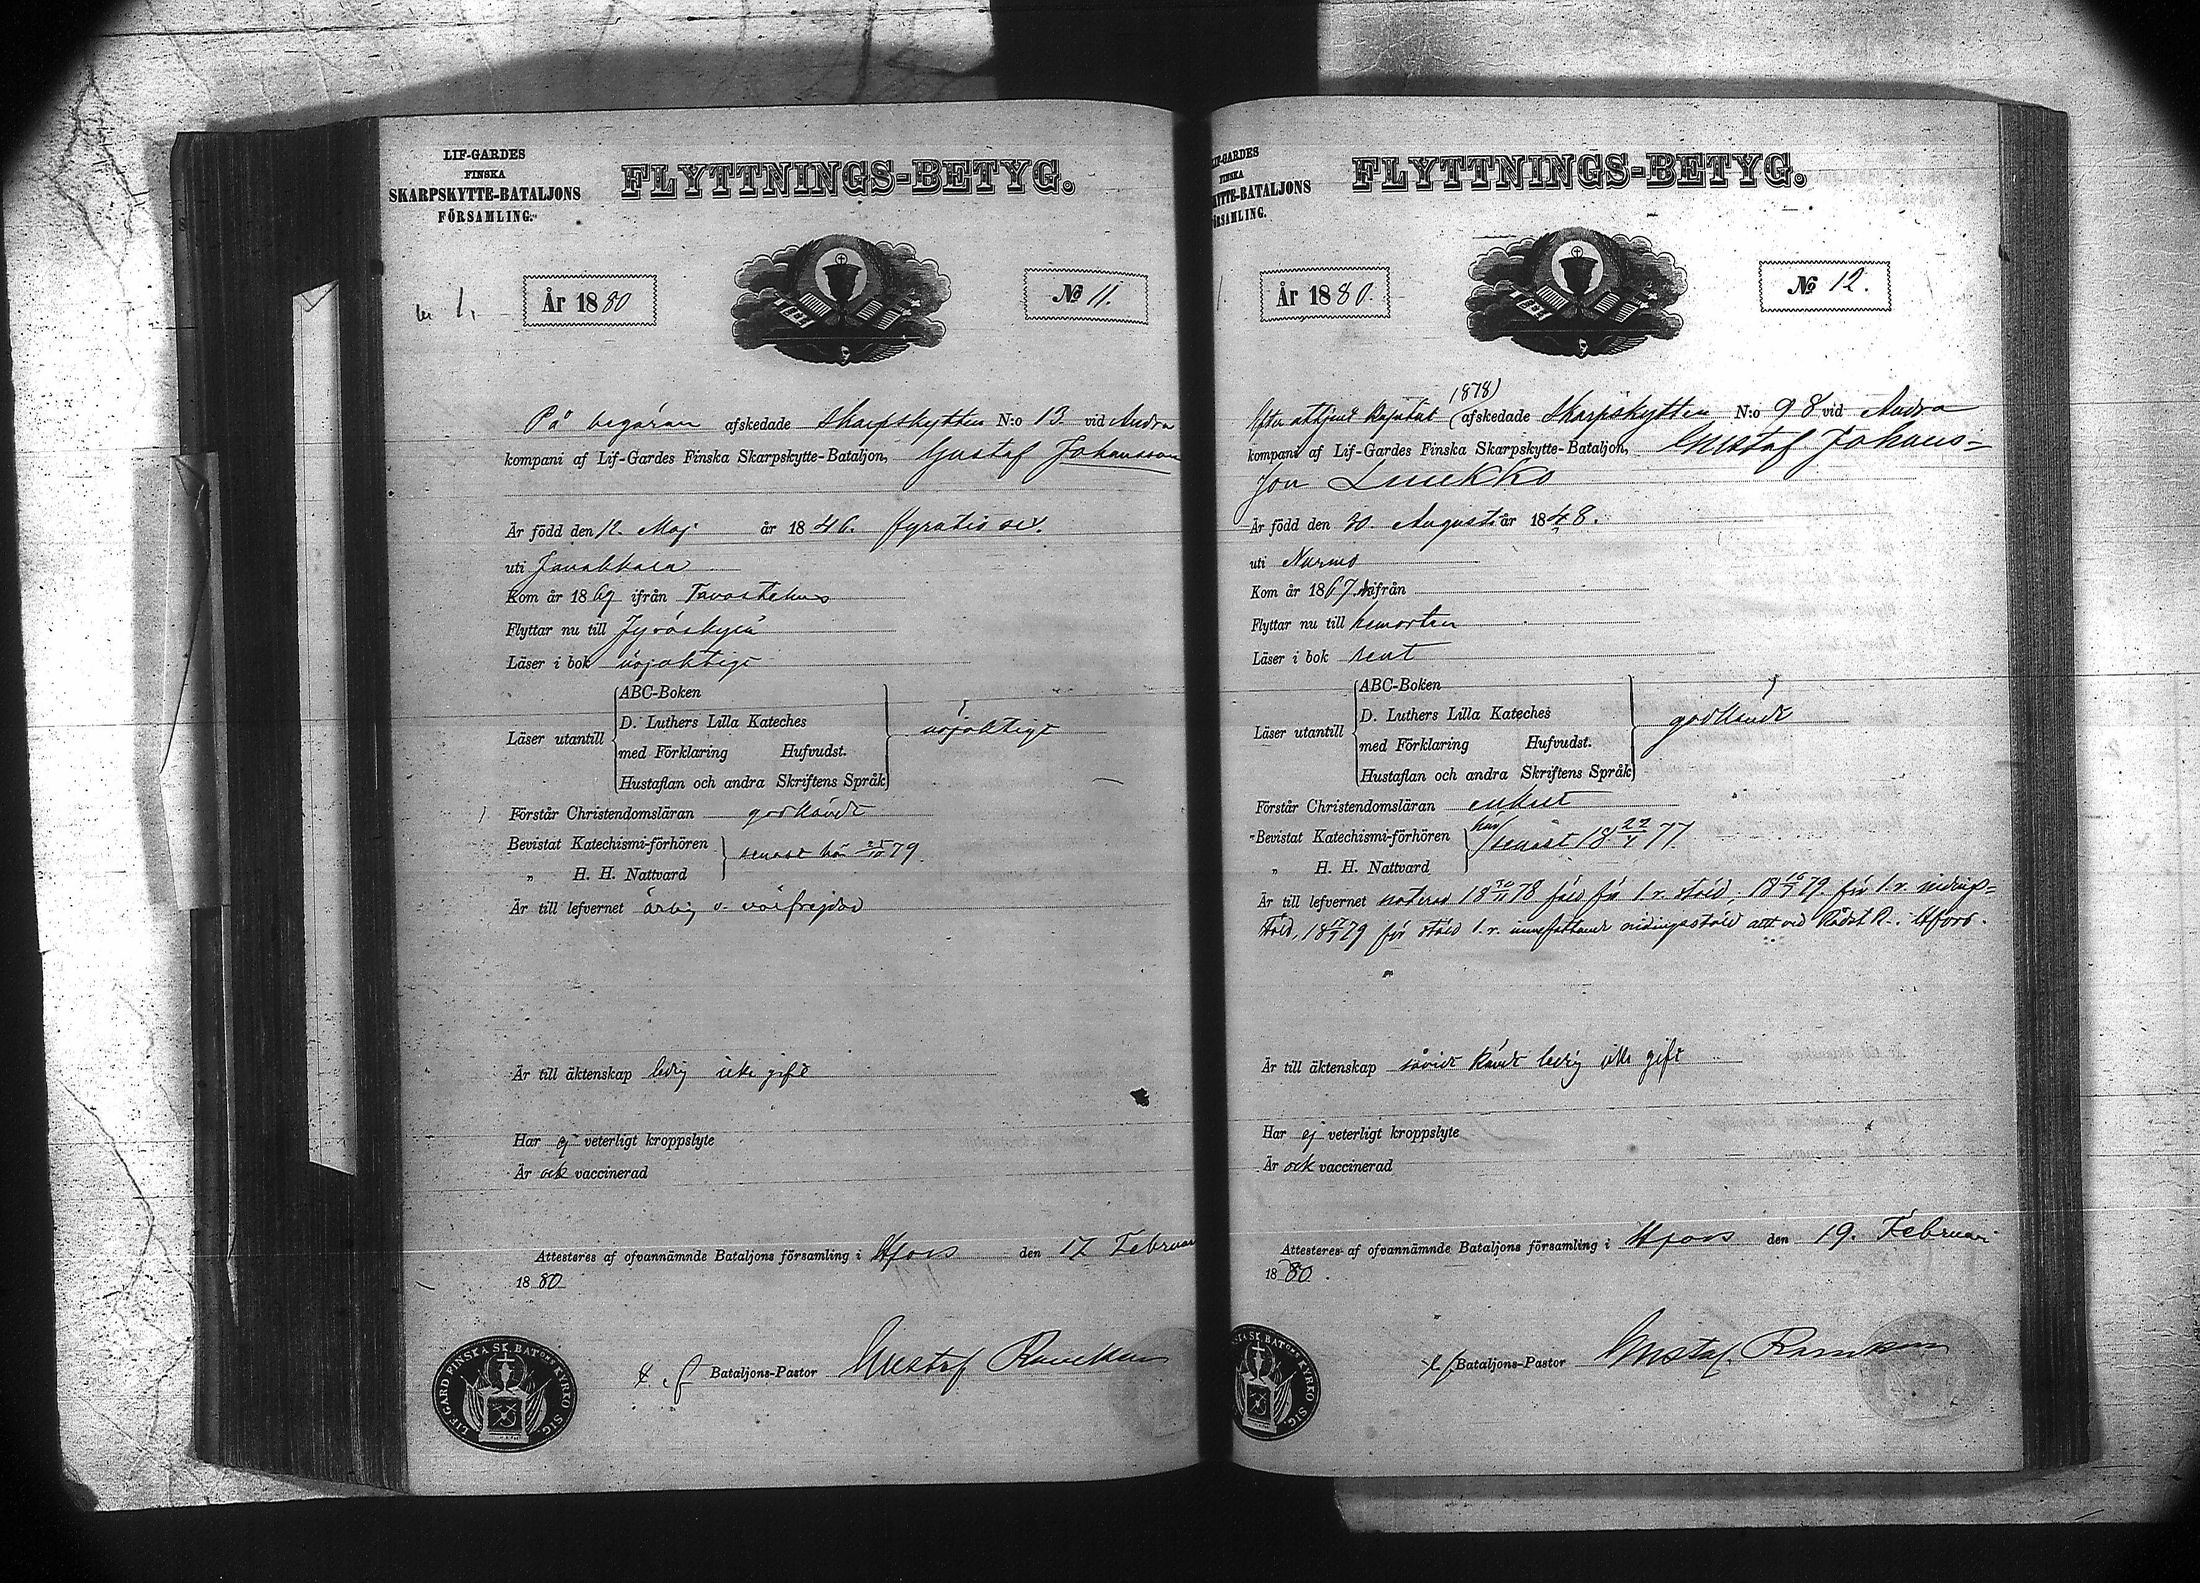 LIF-GARDES
FINSKA
SKARPSKYTTE-BATALJONS
FÖRSAMLING.
FLYTTNINGS-BETYG.
År 1880
№ 11.
På begäran afskedade Skarpskytten N:o 13 vid Andra
kompani af Lif-Gardes Finska Skarpskytte-Bataljon, Gustaf Johansson
Är född den 12. Maj år 1846. fyratio sex.
uti Janakkala
Kom år 1869 ifrån Tavastehus
Flyttar nu till Jyväskylä
Läser i bok nöjaktigt
Läser utantill
ABC-Boken
D. Luthers Lilla Kateches
med Förklaring Hufvudst.
Hustaflan och andra Skriftens Språk
nöjaktigt
Förstår Christendomsläran godkändt
Bevistat Katechismi-förhören
„ H. H. Nattvard
senast här 25/10 79
Är till lefvernet ärlig o. välfrejdad
Är till äktenskap ledig icke gift
Har ej veterligt kroppslyte
Är ock vaccinerad
Attesteres af ofvannämnde Bataljons församling i Hfors den 17 Februari
1880
t. f. Bataljons-Pastor Gustaf
LIF GARD FINSKA SK BATONS KYRKO SIG.
LIF-GARDES
FINSKA
SKYTTE-BATALJONS
FÖRSAMLING.
FLYTTNINGS-BETYG.
År 1880.
№ 12.
1878)
Efter aftjent (afskedade Skarpskytten N:o 98 vid Andra
kompani af Lif-Gardes Finska Skarpskytte-Bataljon, Gustaf Johans-
son Luukko
Är född den 20. Augusti år 1848.
uti Nurmo
Kom år 1867 ifrån
Flyttar nu till hemorten
Läser i bok rent
Läser utantill
ABC-Boken
D. Luthers Lilla Kateches
med Förklaring Hufvudst.
Hustaflan och andra Skriftens Språk
godkändt
Förstår Christendomsläran enkelt
Bevistat Katechismi-förhören
„ H. H. Nattvard
här senast 18 22/4 77.
Är till lefvernet noterad 18 30/11 78 fäld för 1. r. stöld, 18 16/1 79 för 1. r. nidings-
stöld, 18 79 för stöld 1. r. innefattande nidingsstöld allt vid Rådst. R. i Hfors.
Är till äktenskap såvidt kändt ledig icke gift
Har ej veterligt kroppslyte
Är ock vaccinerad
Attesteres af ofvannämnde Bataljons församling i Hfors den 19. Februari
1880.
t. f. Bataljons-Pastor Gustaf
SK BATONS KYRKO SIG.